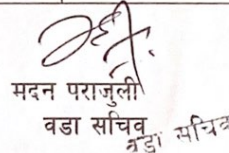 मदन पराजुली
वडा सचिव
वडा सचिव